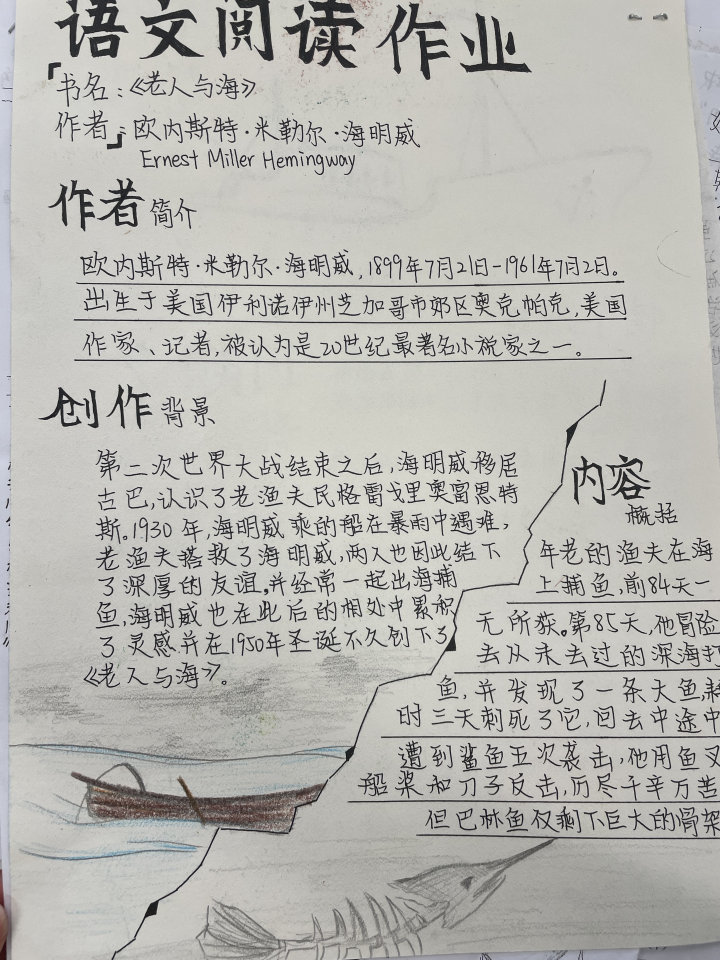 语文阅读作业
「书名：《老人与海》
作者」：欧内斯特·米勒尔·海明威
Ernest Miller Hemingway
作者简介
欧内斯特·米勒尔·海明威，1899年7月21日-1961年7月2日。
出生于美国伊利诺伊州芝加哥市郊区奥克帕克，美国
作家、记者，被认为是20世纪最著名小说家之一。
创作背景
第二次世界大战结束之后，海明威移居
古巴，认识了老渔夫民格雷戈里奥富恩特
斯。1930年，海明威乘的船在暴雨中遇难，
老渔夫搭救了海明威，两人也因此结下
了深厚的友谊。并经常一起出海捕
鱼，海明威也在此后的相处中累积
了灵感并在1950年圣诞不久创下了
《老人与海》。
内容
概括
年老的渔夫在海
上捕鱼，前84天一
无所获。第85天，他冒险
去从未去过的深海打
鱼，并发现了一条大鱼，耗
时三天刺死了它，回去中途中
遭到鲨鱼五次袭击，他用鱼叉
船桨和刀子反击，历尽千辛万苦
但巴林鱼仅剩下巨大的骨架